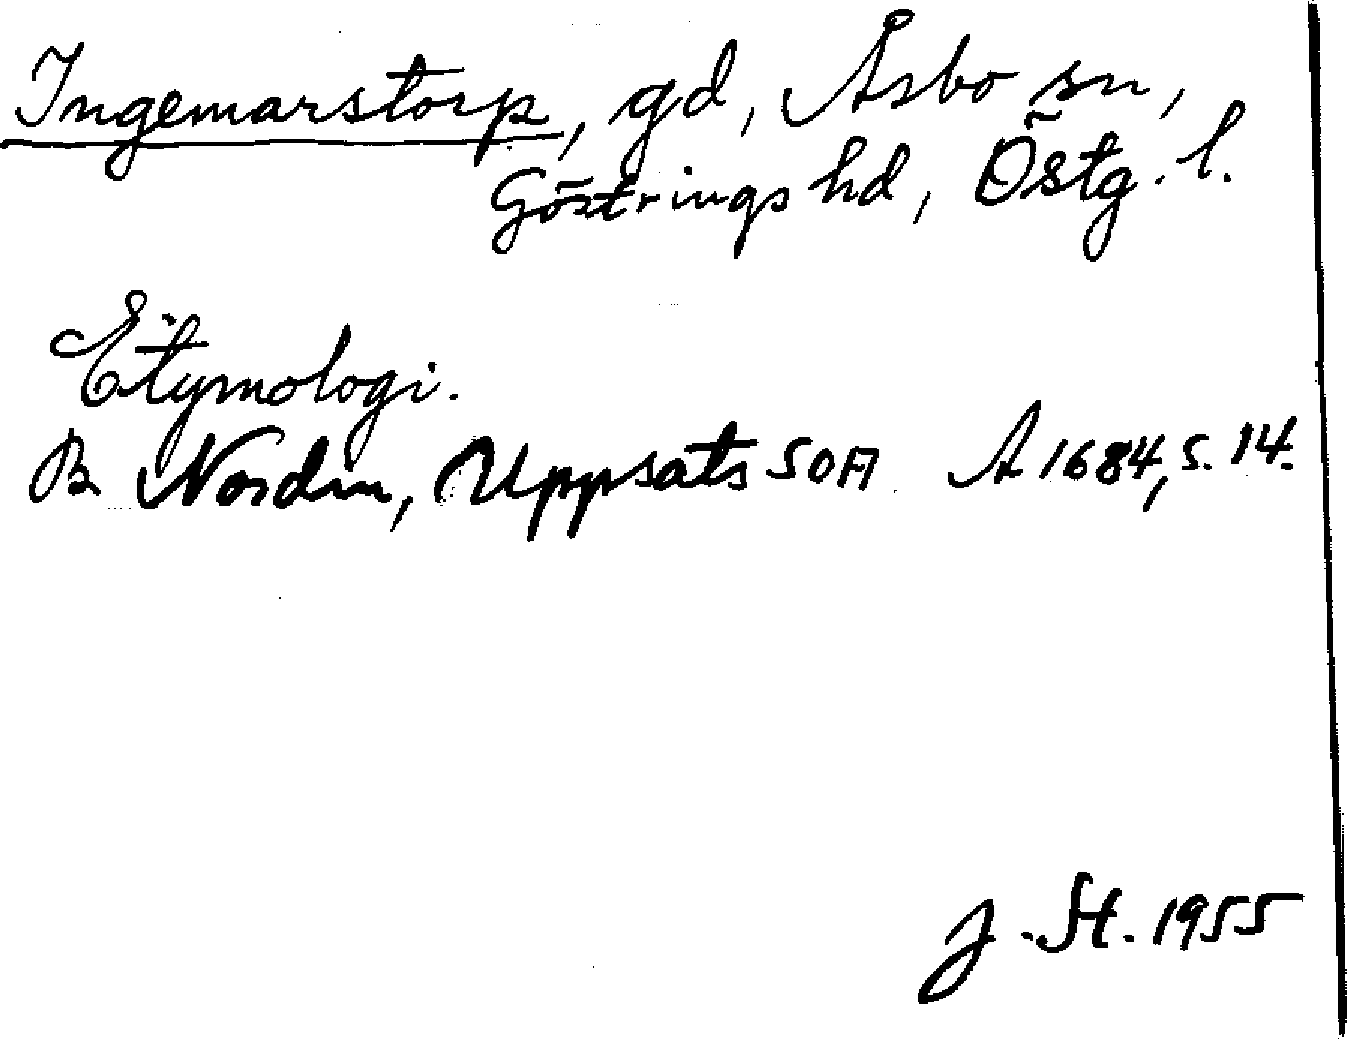 Ingemarstorp, gd, Åsbo sn,
Göstrings hd, Östg. l.
Etymologi.
B. Nordin, Uppsats SOA A 1684, s. 14.
J. St. 1955